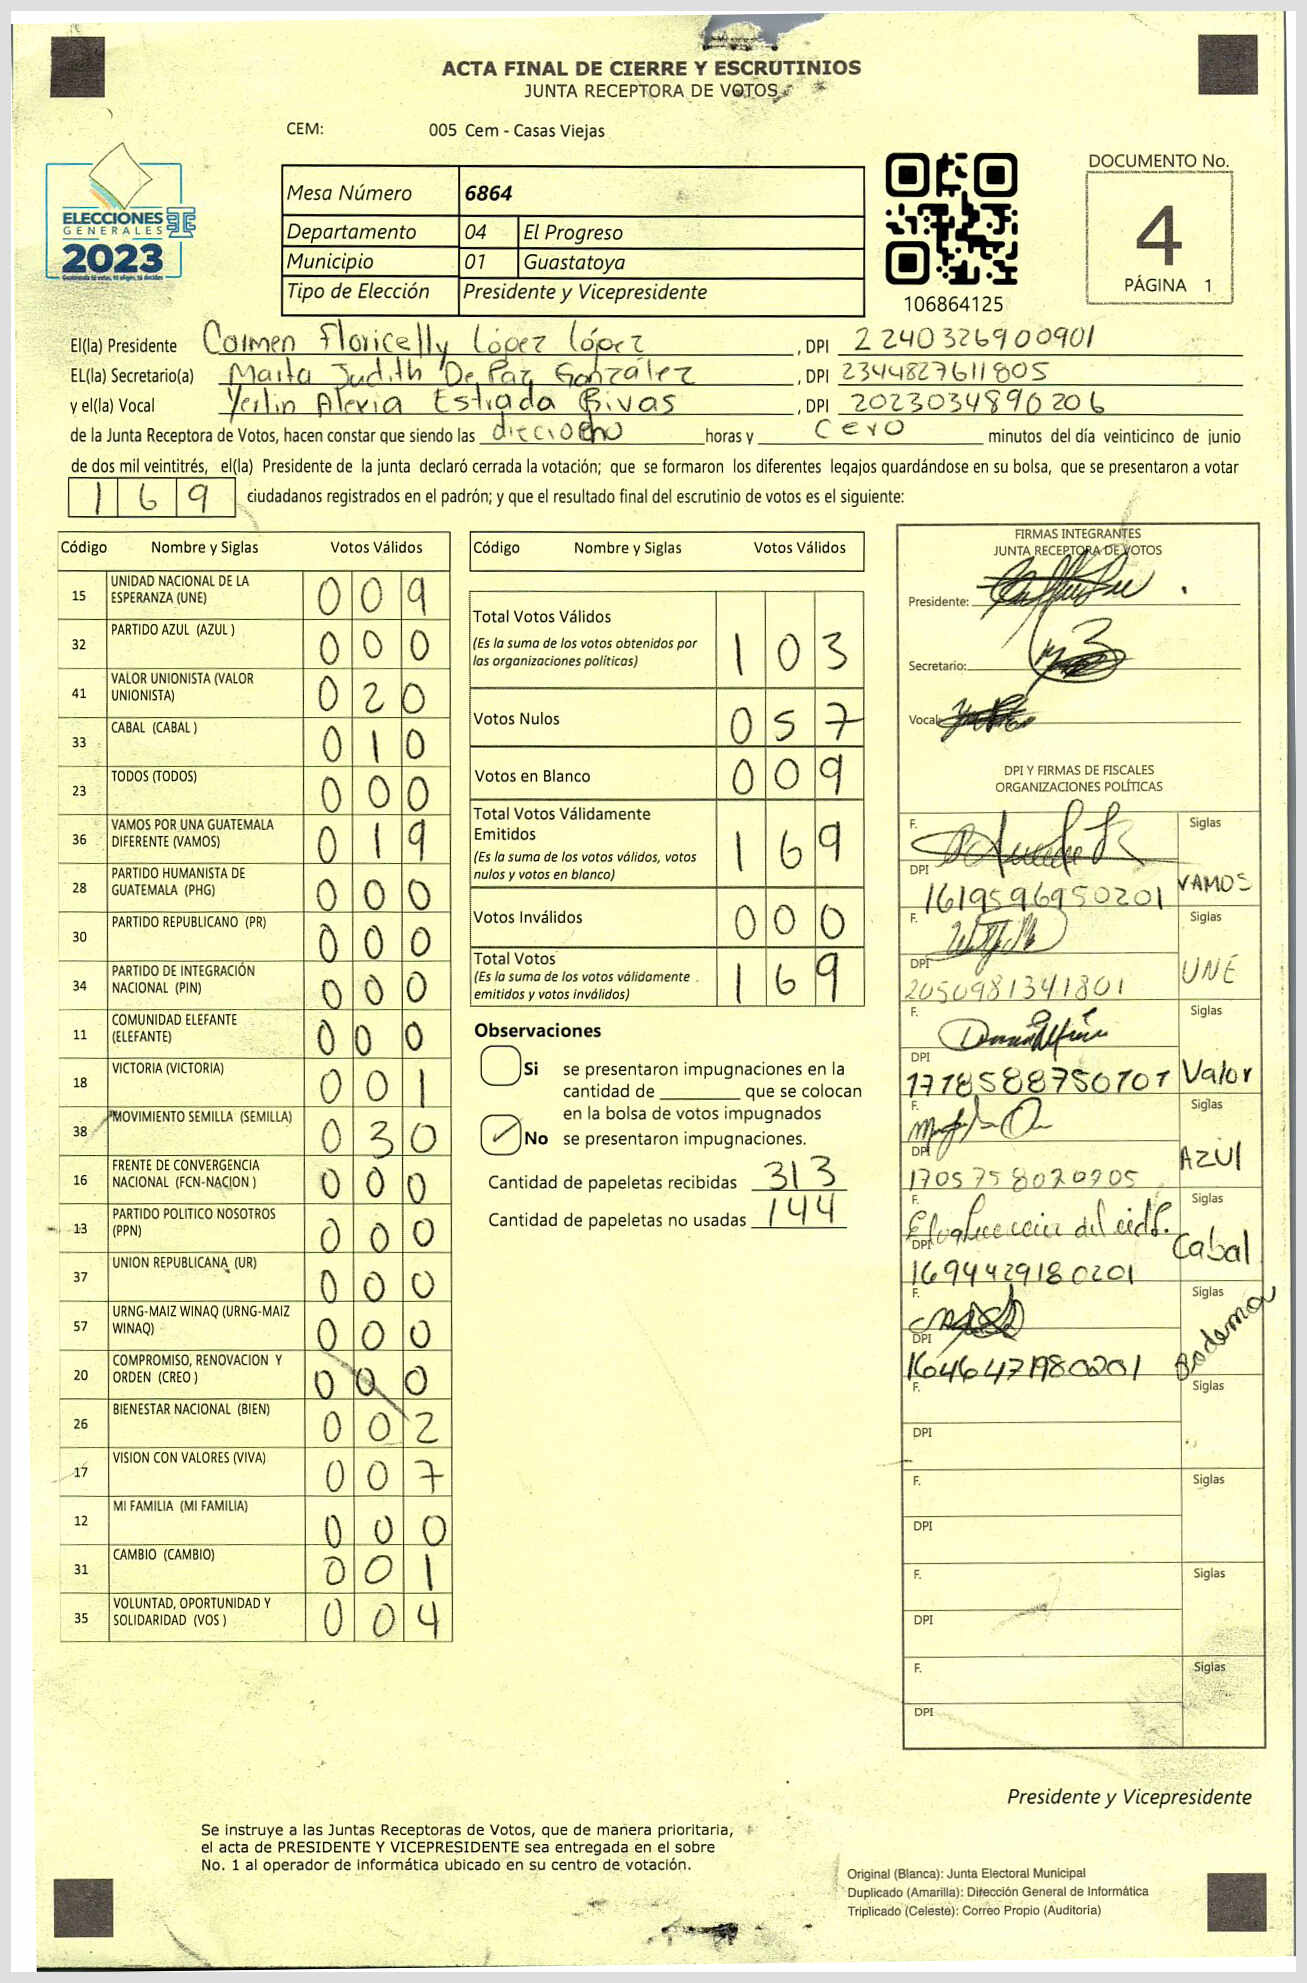 ACTA FINAL DE CIERRE Y ESCRUTINIOS
JUNTA RECEPTORA DE VOTOS
CEM: 005 Cem - Casas Viejas
ELECCIONES
GENERALES
2023
Mesa Número 6864
Departamento 04 El Progreso
Municipio 01 Guastatoya
Tipo de Elección Presidente y Vicepresidente
106864125
DOCUMENTO No.
4
PÁGINA 1
El(la) Presidente Carmen Floricelly López López , DPI 2240326900901
EL(la) Secretario(a) Marta Judith De Paz González , DPI 2344827611805
y el(la) Vocal Yerlin Alexia Estrada Rivas , DPI 2023034890206
de la Junta Receptora de Votos, hacen constar que siendo las dieciocho horas y cero minutos del día veinticinco de junio
de dos mil veintitrés, el(la) Presidente de la junta declaró cerrada la votación; que se formaron los diferentes legajos guardándose en su bolsa, que se presentaron a votar
169 ciudadanos registrados en el padrón; y que el resultado final del escrutinio de votos es el siguiente:
Código Nombre y Siglas Votos Válidos
15 UNIDAD NACIONAL DE LA ESPERANZA (UNE) 009
32 PARTIDO AZUL (AZUL ) 000
41 VALOR UNIONISTA (VALOR UNIONISTA) 020
33 CABAL (CABAL ) 010
23 TODOS (TODOS) 000
36 VAMOS POR UNA GUATEMALA DIFERENTE (VAMOS) 019
28 PARTIDO HUMANISTA DE GUATEMALA (PHG) 000
30 PARTIDO REPUBLICANO (PR) 000
34 PARTIDO DE INTEGRACIÓN NACIONAL (PIN) 000
11 COMUNIDAD ELEFANTE (ELEFANTE) 000
18 VICTORIA (VICTORIA) 001
38 MOVIMIENTO SEMILLA (SEMILLA) 030
16 FRENTE DE CONVERGENCIA NACIONAL (FCN-NACION ) 000
13 PARTIDO POLITICO NOSOTROS (PPN) 000
37 UNION REPUBLICANA (UR) 000
57 URNG-MAIZ WINAQ (URNG-MAIZ WINAQ) 000
20 COMPROMISO, RENOVACION Y ORDEN (CREO ) 000
26 BIENESTAR NACIONAL (BIEN) 002
17 VISION CON VALORES (VIVA) 007
12 MI FAMILIA (MI FAMILIA) 000
31 CAMBIO (CAMBIO) 001
35 VOLUNTAD, OPORTUNIDAD Y SOLIDARIDAD (VOS ) 004
Código Nombre y Siglas Votos Válidos
Total Votos Válidos 103
(Es la suma de los votos obtenidos por
las organizaciones políticas)
Votos Nulos 057
Votos en Blanco 009
Total Votos Válidamente
Emitidos 169
(Es la suma de los votos válidos, votos
nulos y votos en blanco)
Votos Inválidos 000
Total Votos 169
(Es la suma de los votos válidamente
emitidos y votos inválidos)
Observaciones
Si se presentaron impugnaciones en la
cantidad de ________ que se colocan
en la bolsa de votos impugnados
No se presentaron impugnaciones.
Cantidad de papeletas recibidas 313
Cantidad de papeletas no usadas 144
FIRMAS INTEGRANTES
JUNTA RECEPTORA DE VOTOS
Presidente:
Secretario:
Vocal:
DPI Y FIRMAS DE FISCALES
ORGANIZACIONES POLÍTICAS
F. Siglas
DPI 1619596950201 VAMOS
F. Siglas
DPI 2050981341801 UNE
F. Siglas
DPI 1778588750701 Valor
F. Siglas
DPI 1705758020205 AZUl
F. Siglas
DPI 1694429180201 Cabal
F. Siglas
DPI 1646471980201
F. Siglas
DPI
F. Siglas
DPI
F. Siglas
DPI
F. Siglas
DPI
Presidente y Vicepresidente
Se instruye a las Juntas Receptoras de Votos, que de manera prioritaria,
el acta de PRESIDENTE Y VICEPRESIDENTE sea entregada en el sobre
No. 1 al operador de informática ubicado en su centro de votación.
Original (Blanca): Junta Electoral Municipal
Duplicado (Amarilla): Dirección General de Informática
Triplicado (Celeste): Correo Propio (Auditoria)